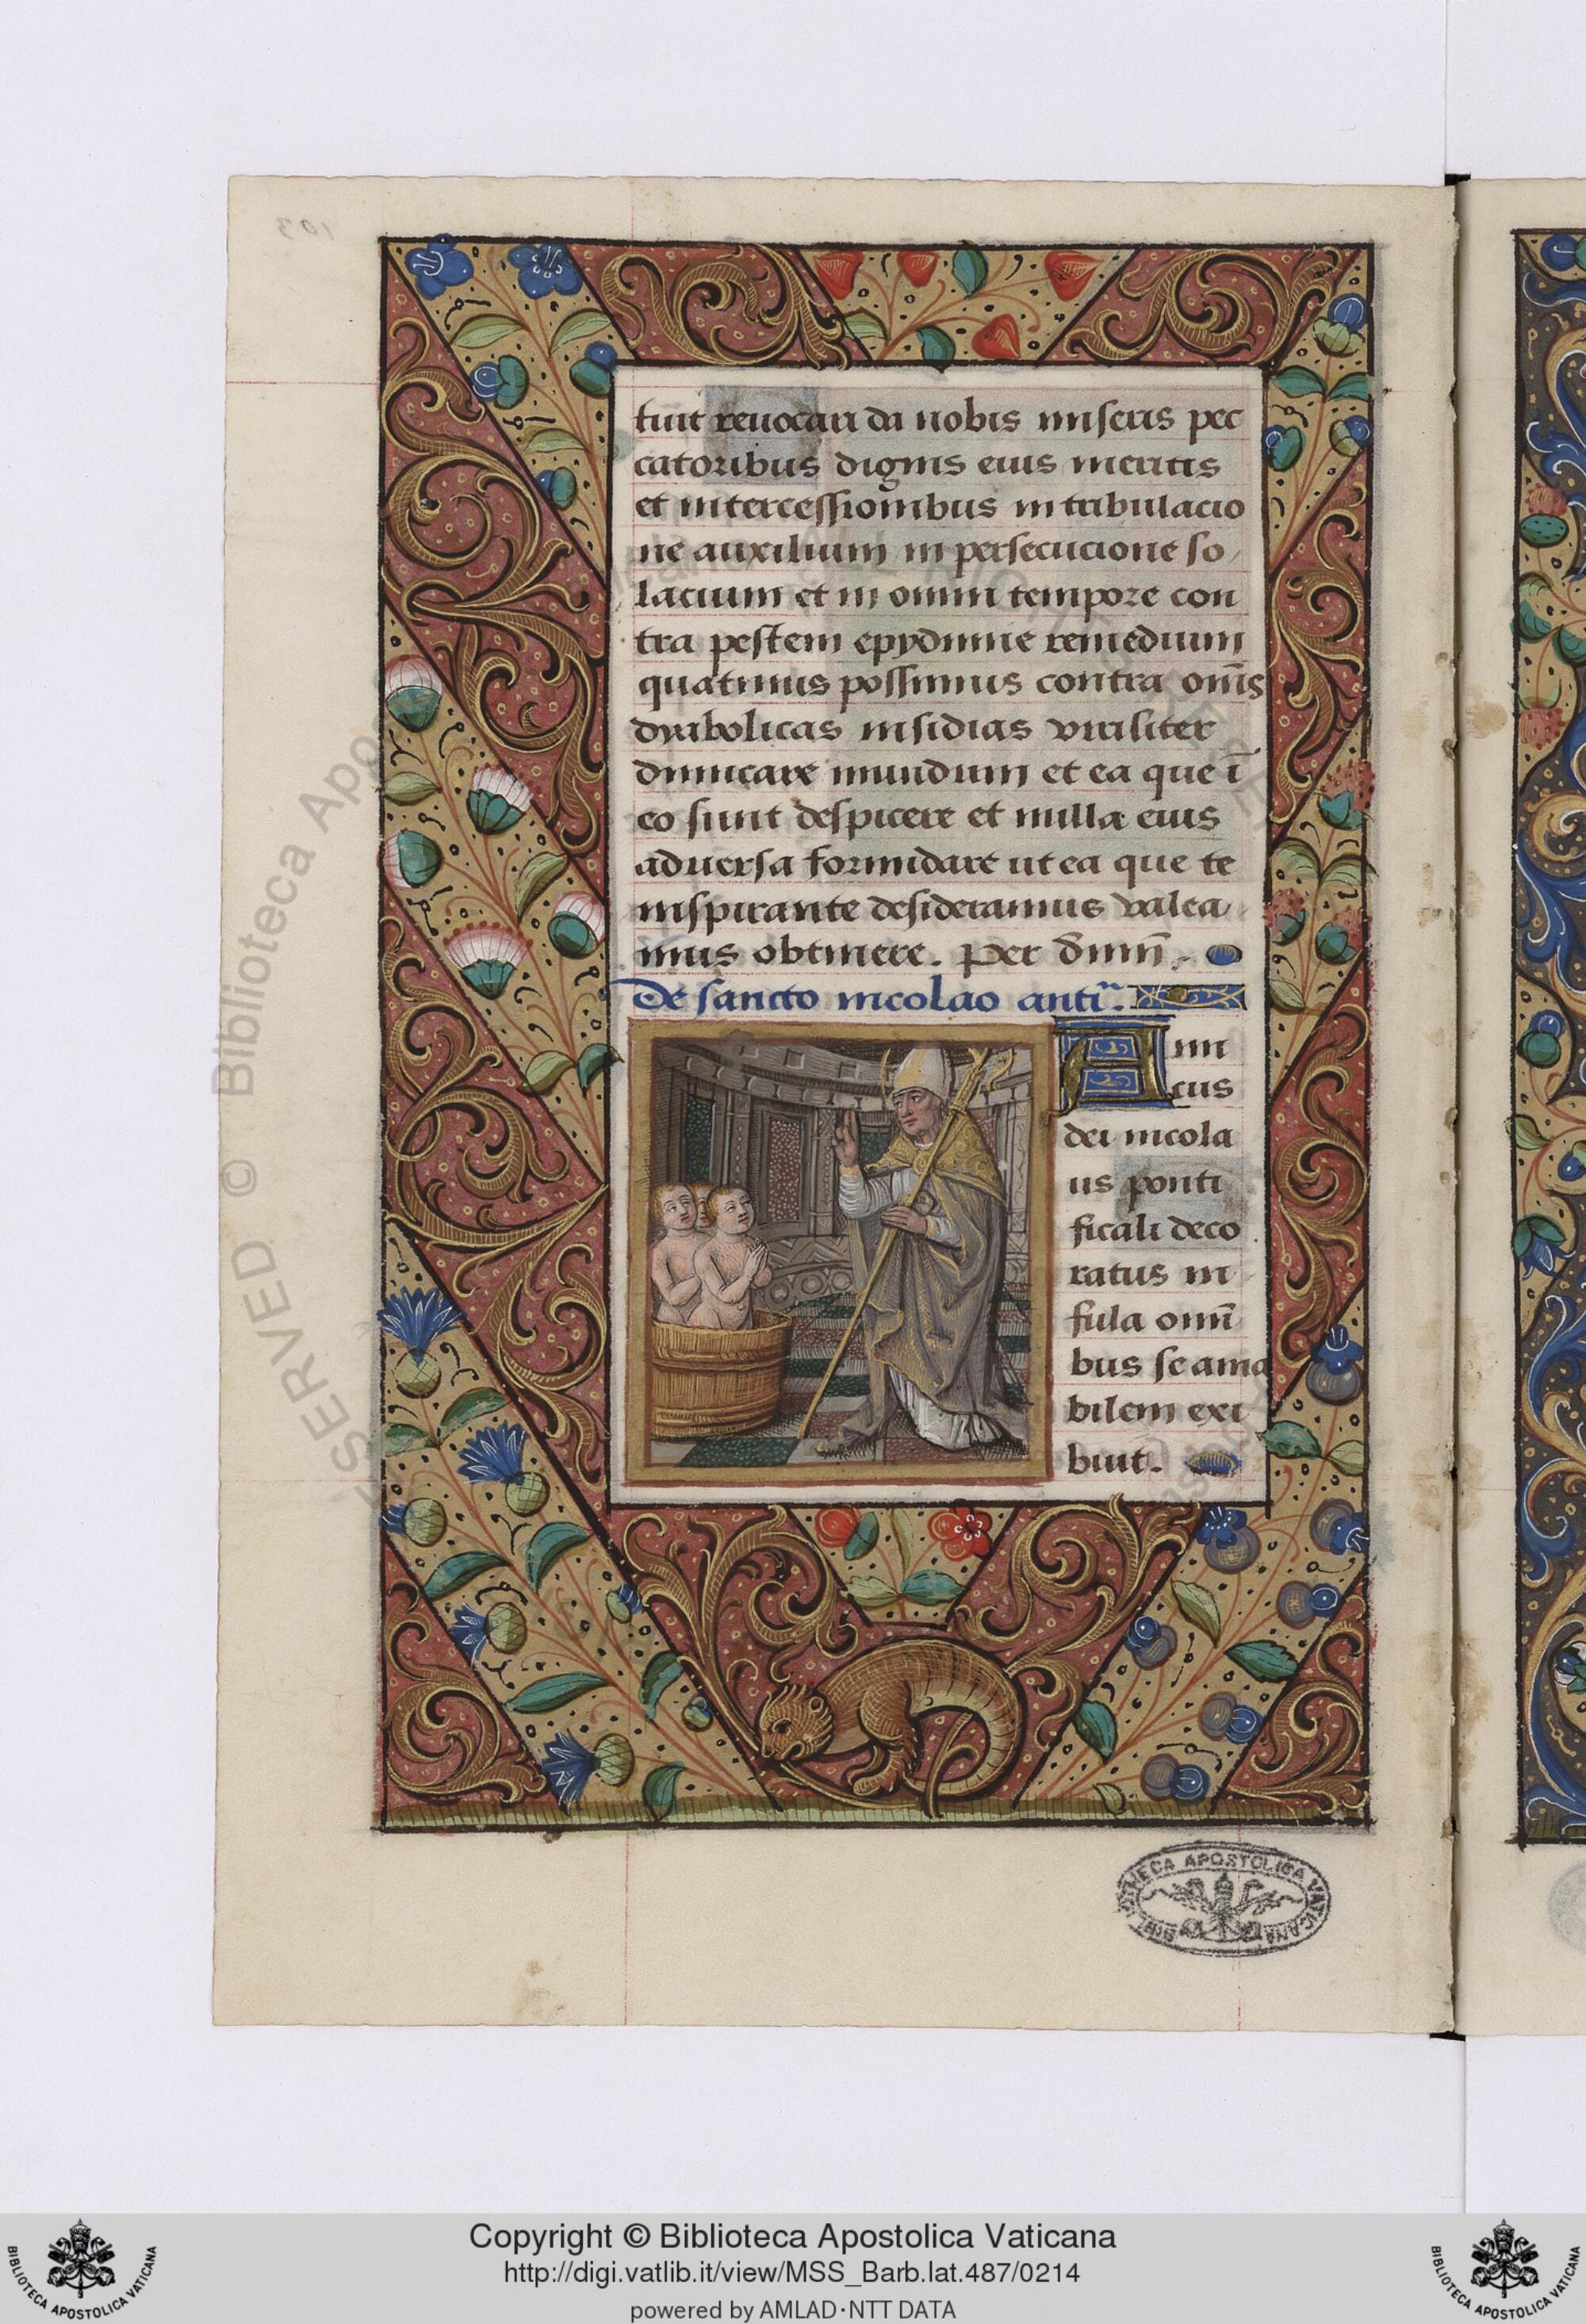 tuit reuocari da nobis miseris pec
catoribus dignis eius meritis
et intercessionibus in tribulacio
ne auxilium in persecucione so
lacium et in omni tempore con
tra pestem epydimie remedium
quatinus possimus contra om̄s
dyabolicas insidias viriliter
dimicare mundum et ea que ī
eo sunt despicere et nulla eius
aduersa formidare ut ea que te
inspirante desideramus valea
mus obtinere. Per dn̄m.
De sancto nicolao antī.
Ami
cus
dei nicola
us ponti
ficali deco
ratus in
fula omī
bus se ama
bilem exi
buit.
103
BIBLIOTECA APOSTOLICA VATICANA
SERVED © Biblioteca Apos
Copyright © Biblioteca Apostolica Vaticana
http://digi.vatlib.it/view/MSS_Barb.lat.487/0214
powered by AMLAD·NTT DATA
BIBLIOTECA APOSTOLICA VATICANA
BIBLIOTECA APOSTOLICA VATICANA